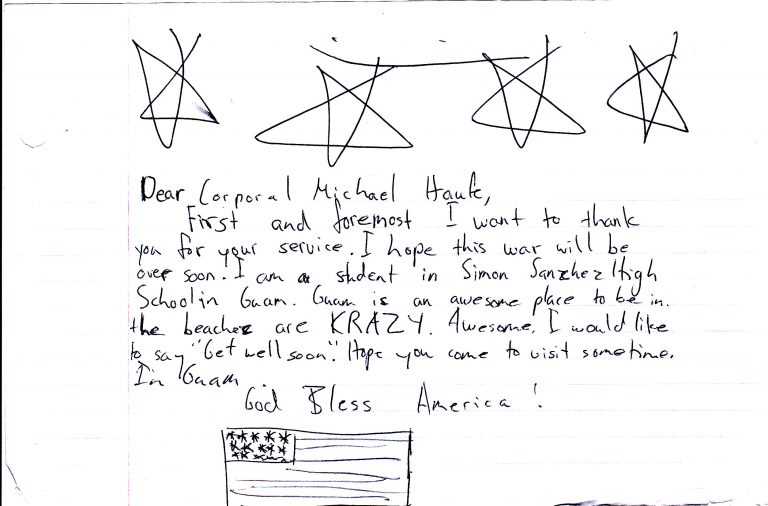 Dear Corporal Michael Hauk,
First and foremost I want to thank
you for your service. I hope this war will be
over soon. I am a student in Simon Sanzhez High
School in Guam. Guam is an awesome place to be in.
the beaches are KRAZY. Awesome. I would like
to say "Get well soon". Hope you come to visit sometime.
In Guam
God Bless America!